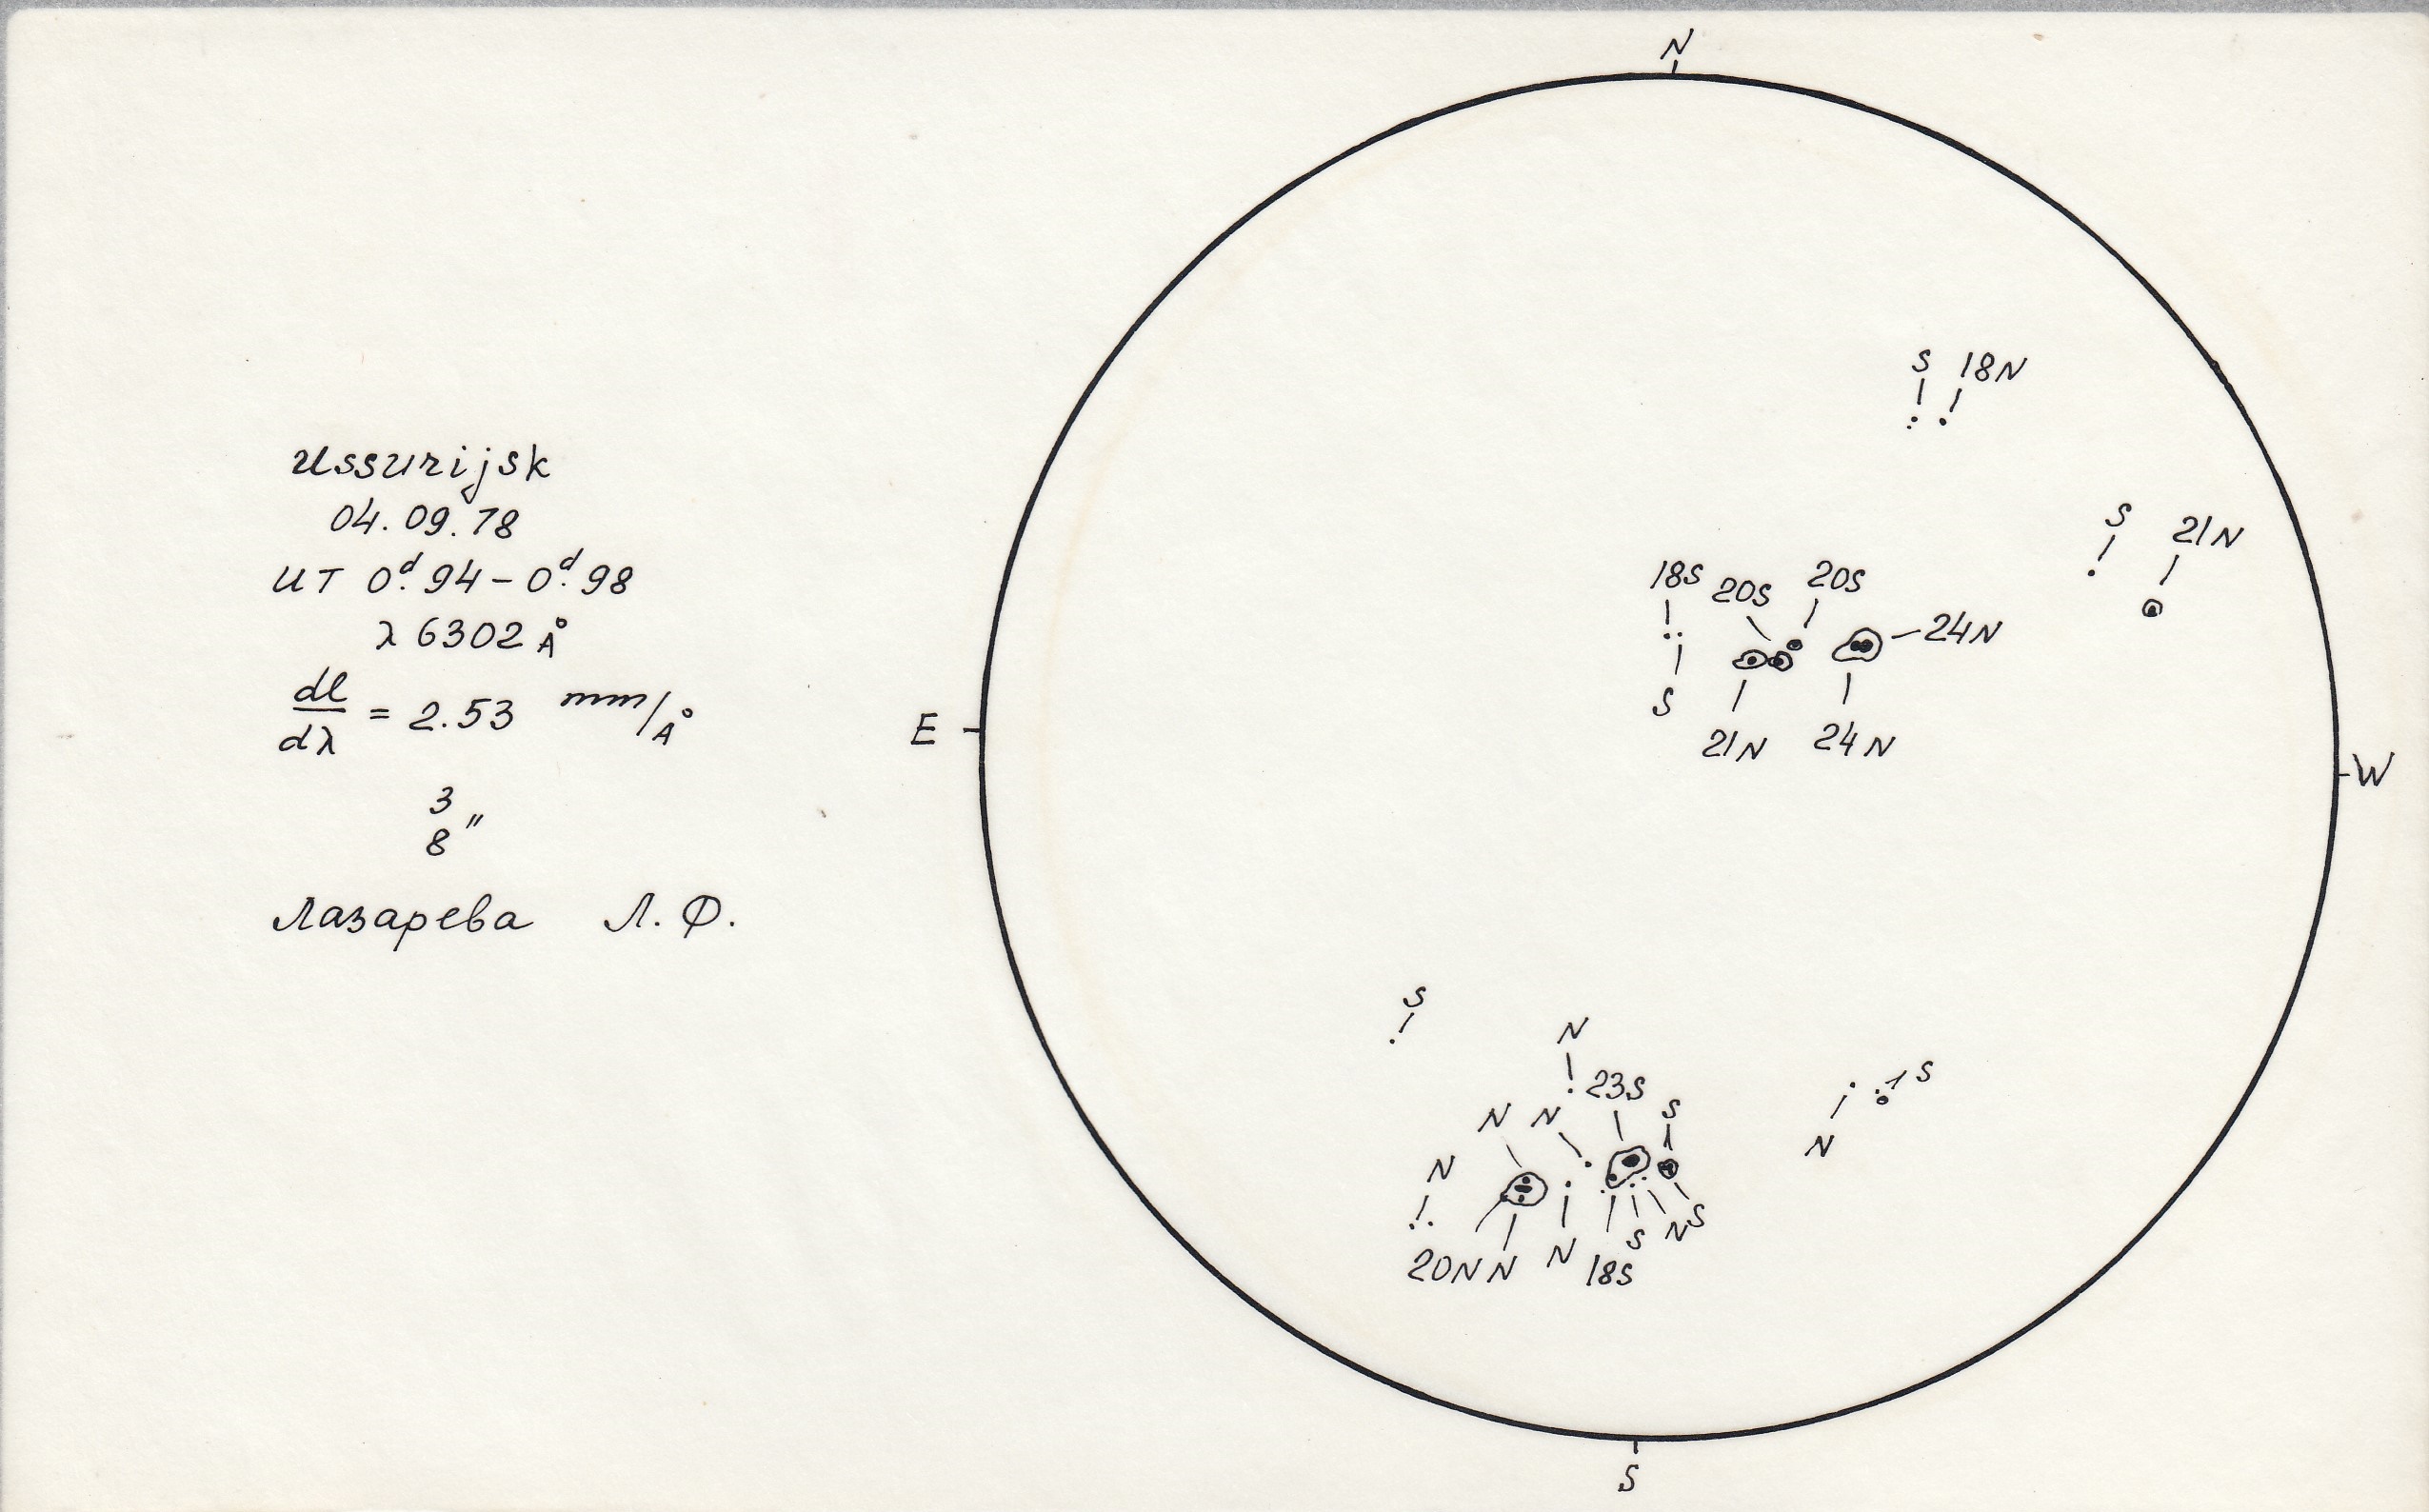 Ussurijsk
04.09.78
UT 0ᵈ.94–0ᵈ.98
λ 6302 Å
dl/dλ = 2.53 mm/Å
3
8"
Лазарева Л.Ф.
N
S 18N
S 21N
18S 20S 20S
24N
S
21N 24N
E
W
S
N
23S
N N S
S
N
N
S
N S
N
20N N 18S
S